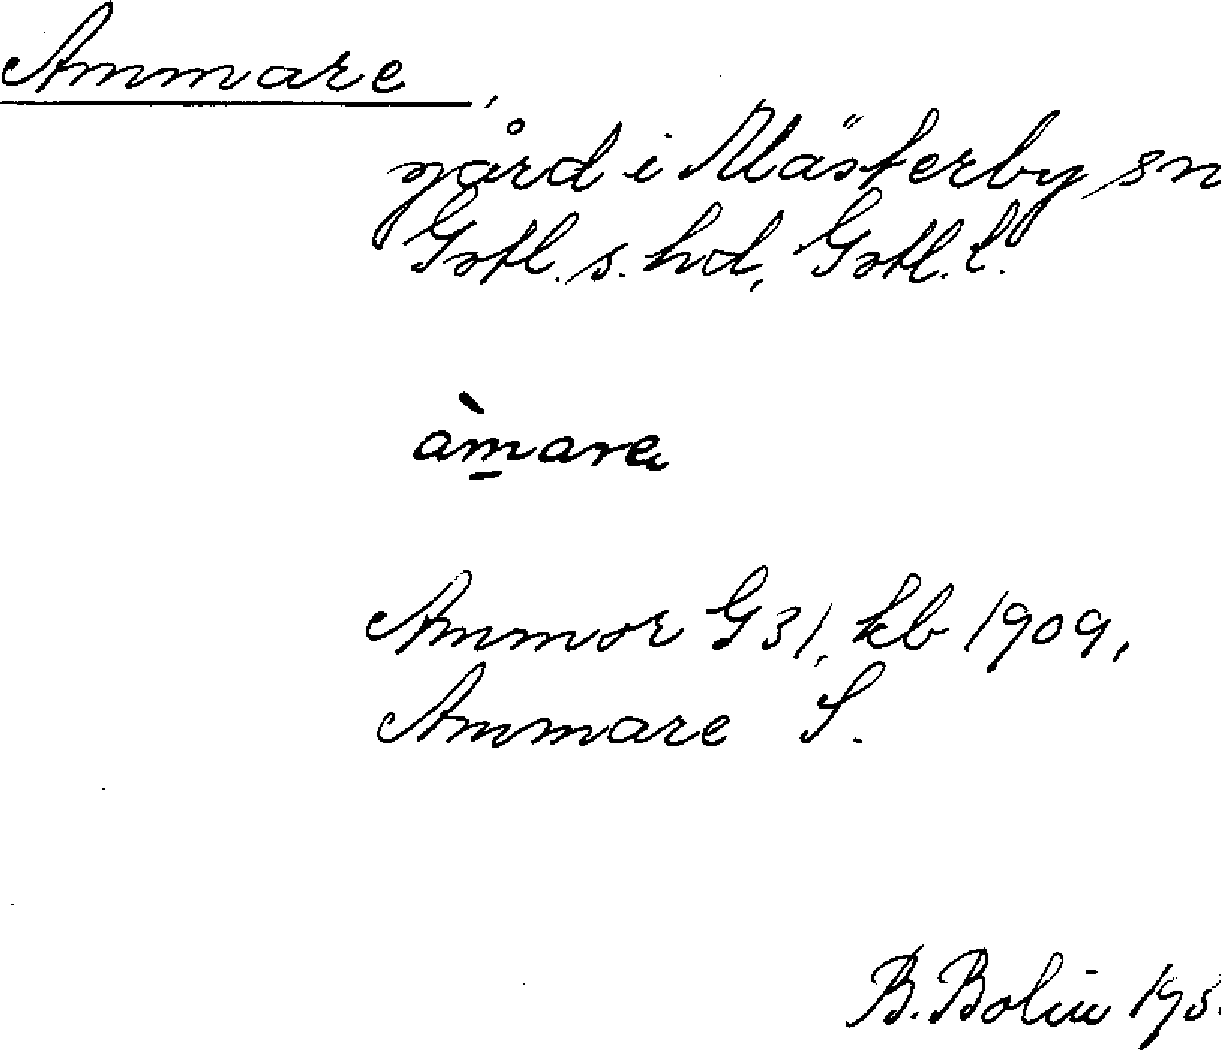 Ammare,
gård i Mästerby sn
Gotl. s. hd, Gotl. l.
àm̱are
Ammor G 31, kb 1909,
Ammare S.
B. Bolin